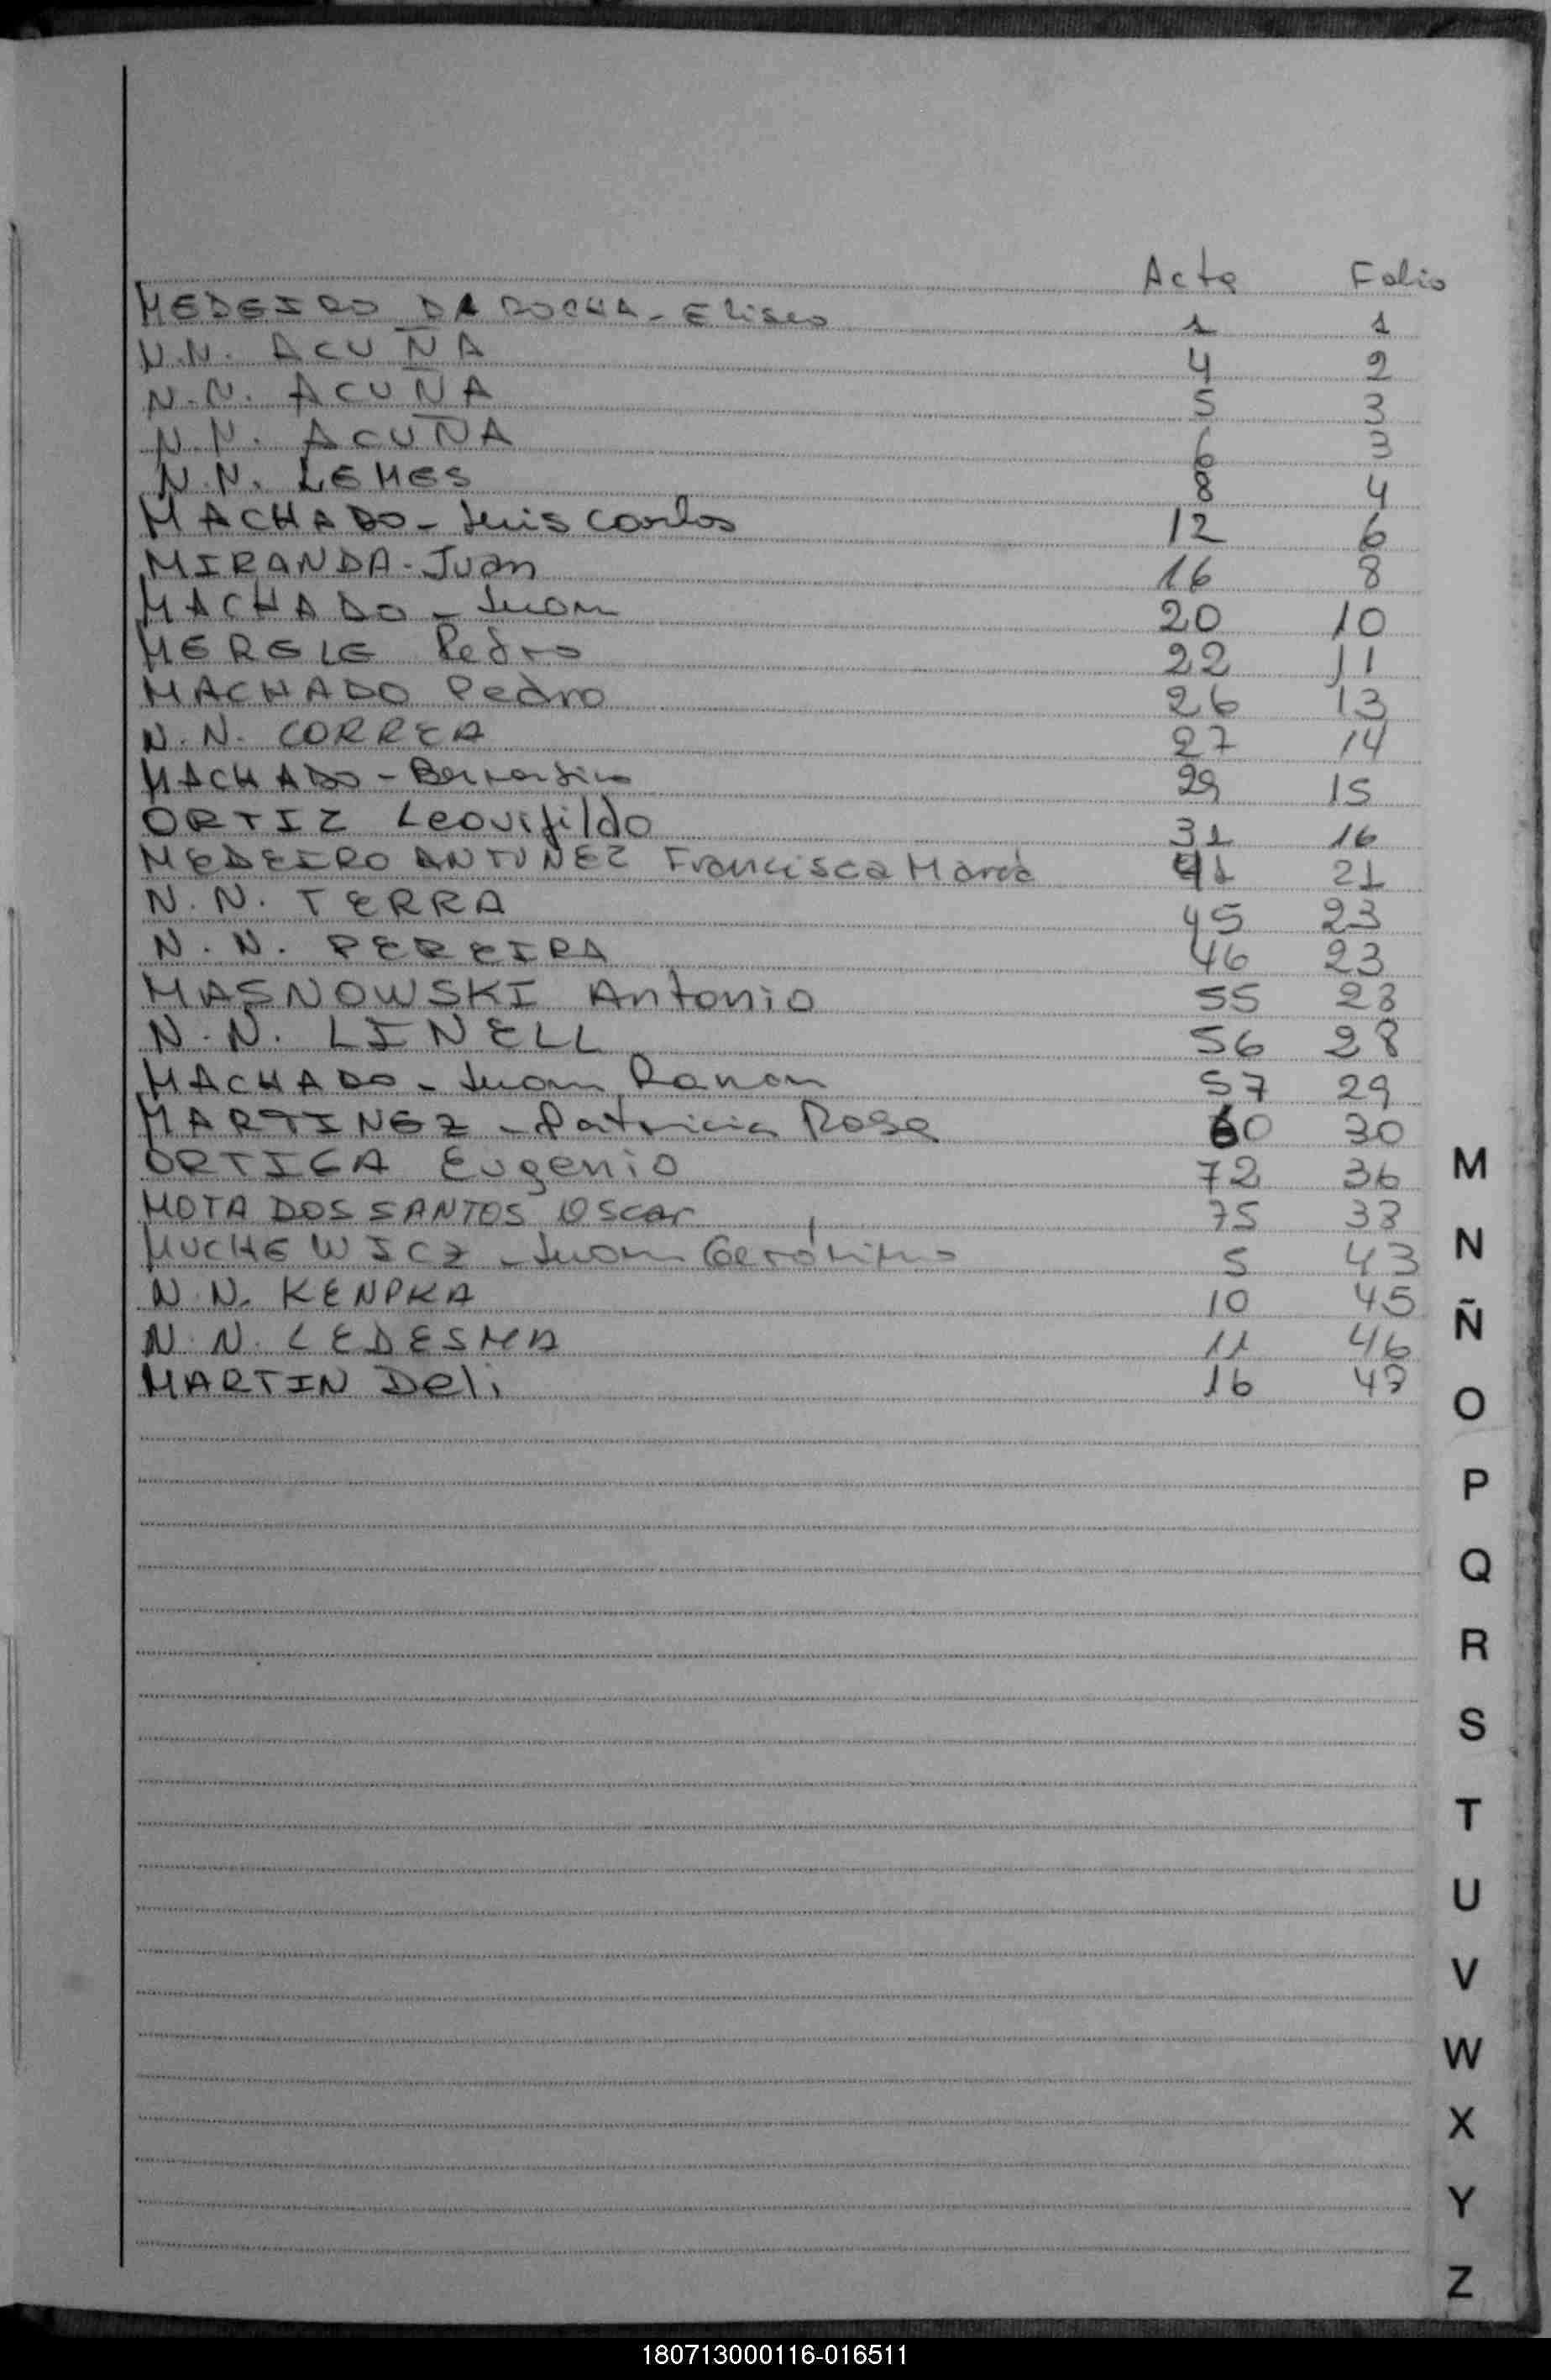 Acta Folio
MEDEIRO DA ROCHA - Eliseo 1 1
N.N. ACUÑA 4 2
N.N. ACUÑA 5 3
N.N. ACUÑA 6 3
N.N. LEMES 8 4
MACHADO - Luis Carlos 12 6
MIRANDA - Juan 16 8
MACHADO - Juan 20 10
MERELE Pedro 22 11
MACHADO Pedro 26 13
N.N. CORREA 27 14
MACHADO - Bernardino 29 15
ORTIZ Leovifildo 31 16
MEDEIRO ANTUNEZ Francisca María 41 21
N.N. TERRA 45 23
N.N. PEREIRA 46 23
MASNOWSKI Antonio 55 28
N.N. LINELL 56 28
MACHADO - Juan Ramon 57 29
MARTINEZ - Patricia Rosa 60 30
ORTIGA Eugenio 72 36
MOTA DOS SANTOS Oscar 75 38
MUCHEWICZ - Juan Gerónimo 5 43
N.N. KENPKA 10 45
N.N. LEDESMA 11 46
MARTIN Deli 16
M
N
Ñ
O
P
Q
R
S
T
U
V
W
X
Y
Z
180713000116-016511